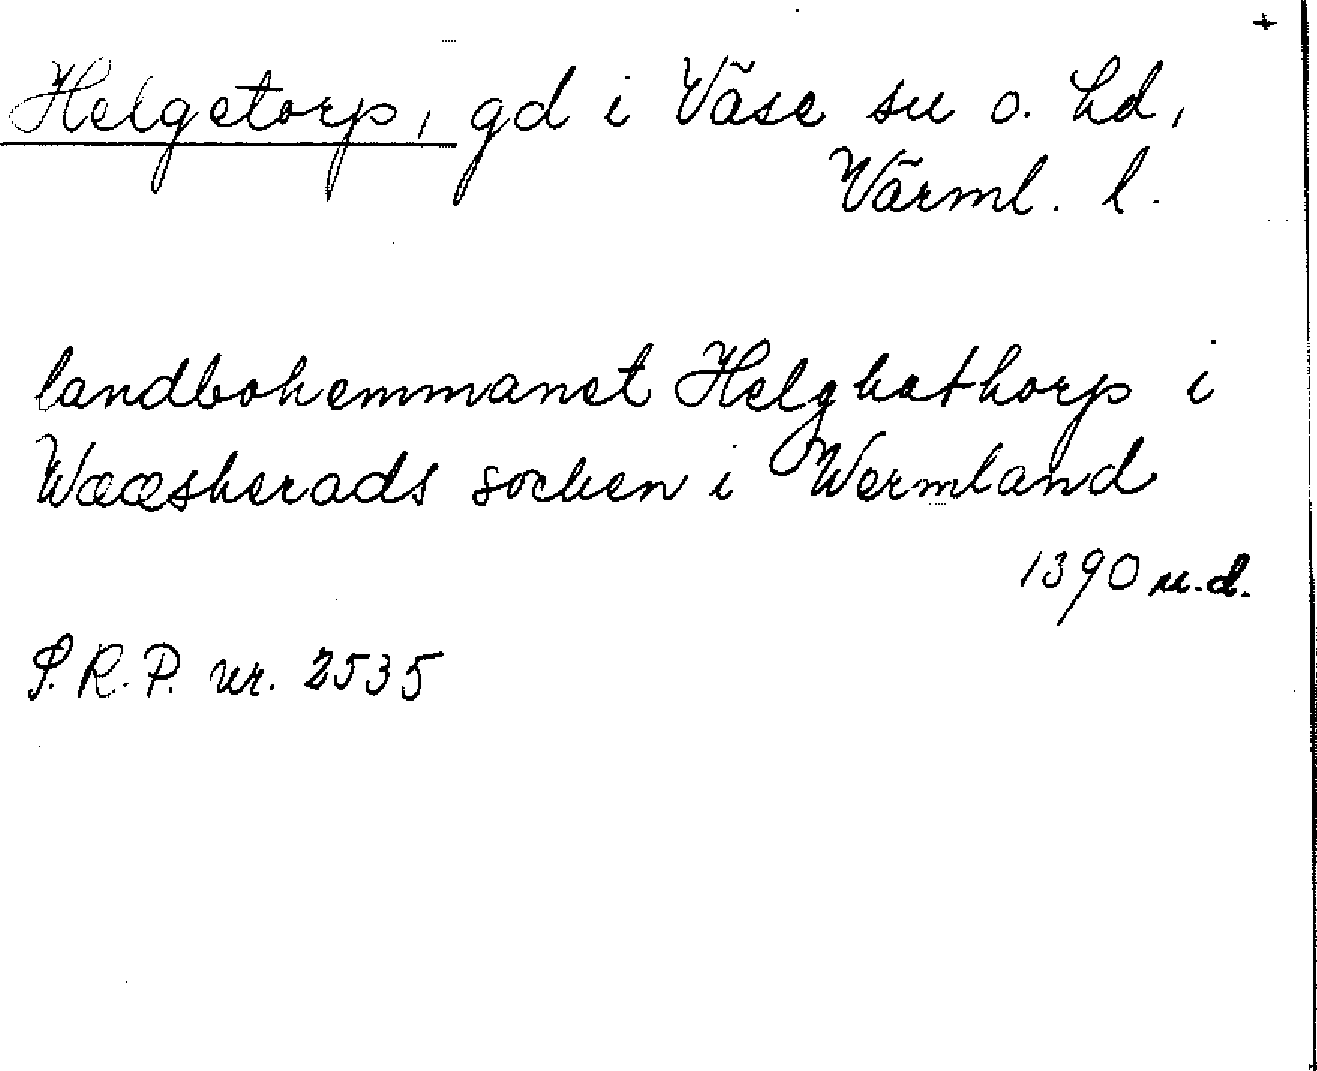 +
Helgetorp, gd i Väse sn o. hd,
Värml. l.
landbohemmanet Helghathorp i
Wææsherads socken i Wermland
1390 u.d.
S.R.P. nr. 2535